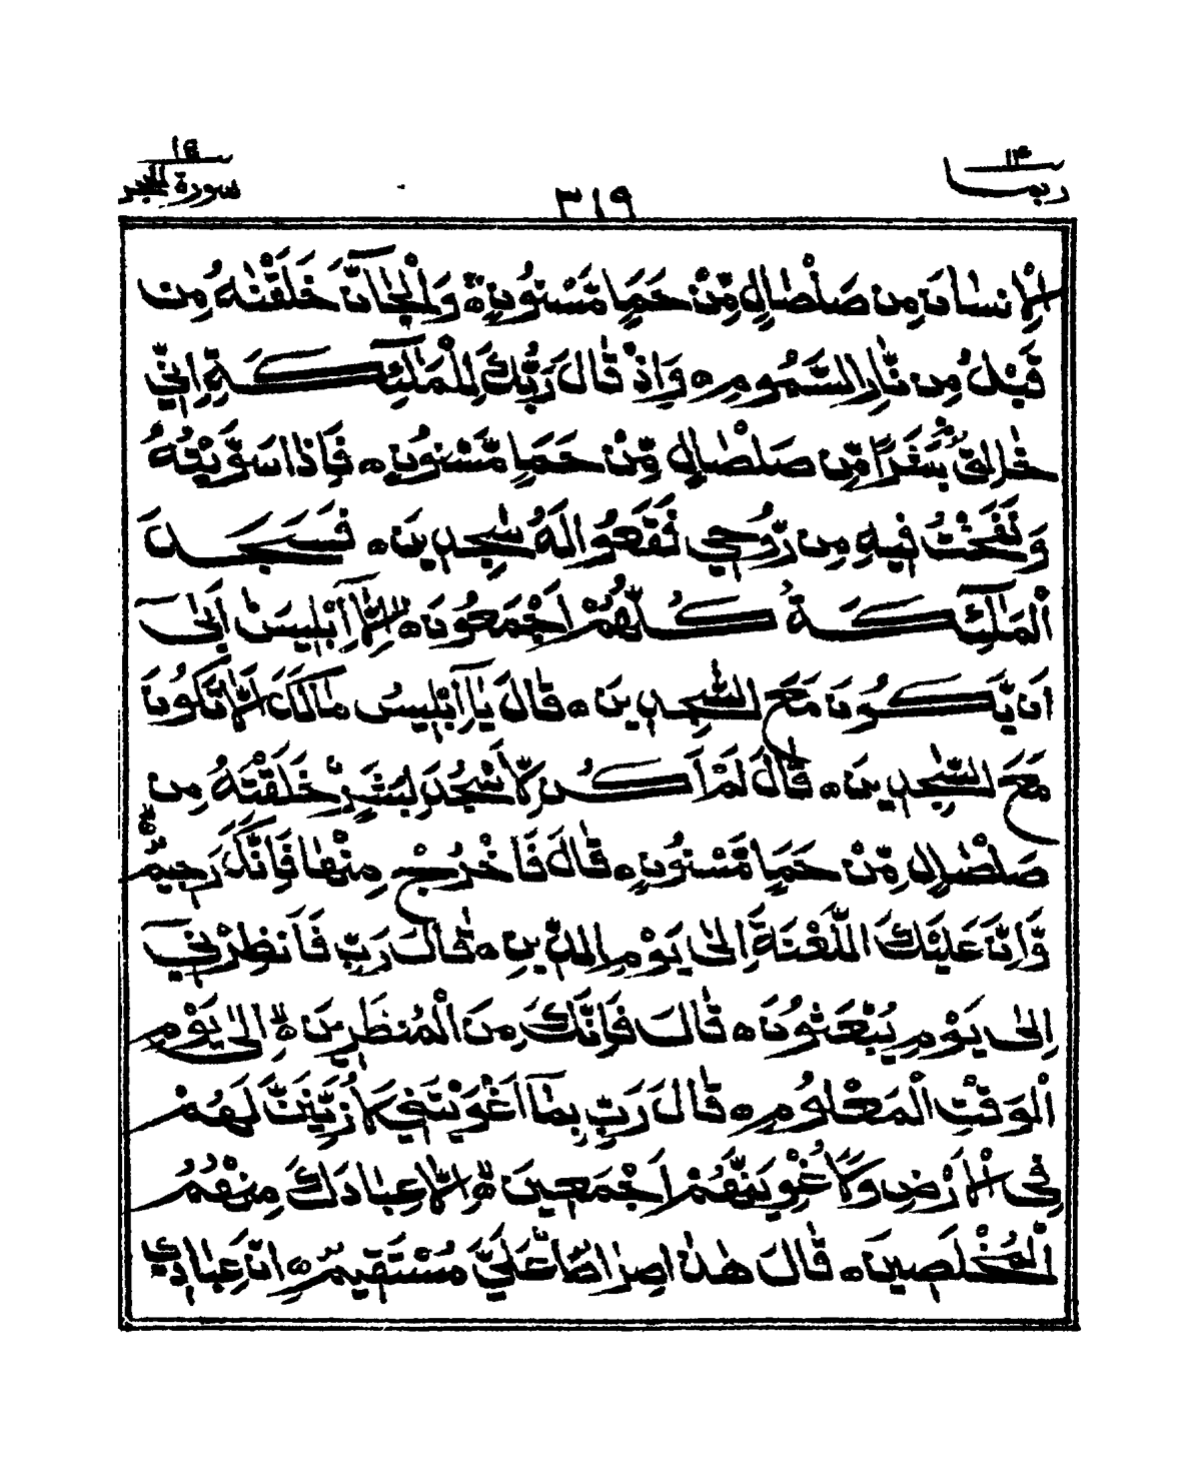 ربما ١٤
٣١٩
سورة الحجر ١٥
الْاِنسٰانَ مِن صَلْصٰالٍ مِّنْ حَمَإٍ مَّسْنُونٍ ۝ وَالْجٰآنَّ خَلَقْنٰهُ مِن
قَبْلُ مِن نّٰارِ السَّمُومِ ۝ وَاِذْ قٰالَ رَبُّكَ لِلْمَلٰٓئِكَةِ اِنِّي
خٰالِقٌۢ بَشَرًا مِّن صَلْصٰالٍ مِّنْ حَمَإٍ مَّسْنُونٍ ۝ فَاِذٰا سَوَّيْتُهُ
وَنَفَخْتُ فِيهِ مِن رُّوحِي فَقَعُوا لَهُ سٰجِدِينَ ۝ فَسَجَدَ
الْمَلٰٓئِكَةُ كُلُّهُمْ اَجْمَعُونَ ۝ اِلّٰآ اِبْلِيسَ اَبٰىٓ
اَن يَّكُونَ مَعَ السّٰجِدِينَ ۝ قٰالَ يٰآ اِبْلِيسُ مٰا لَكَ اَلّٰا تَكُونَ
مَعَ السّٰجِدِينَ ۝ قٰالَ لَمْ اَكُن لِّاَسْجُدَ لِبَشَرٍ خَلَقْتَهُ مِن
صَلْصٰالٍ مِّنْ حَمَإٍ مَّسْنُونٍ ۝ قٰالَ فَاخْرُجْ مِنْهٰا فَاِنَّكَ رَجِيمٌ ۝
وَّاِنَّ عَلَيْكَ اللَّعْنَةَ اِلٰى يَوْمِ الدِّينِ ۝ قٰالَ رَبِّ فَاَنظِرْنِيٓ
اِلٰى يَوْمِ يُبْعَثُونَ ۝ قٰالَ فَاِنَّكَ مِنَ الْمُنظَرِينَ ۝ اِلٰى يَوْمِ
الْوَقْتِ الْمَعْلُومِ ۝ قٰالَ رَبِّ بِمٰآ اَغْوَيْتَنِي لَاُزَيِّنَنَّ لَهُمْ
فِي الْاَرْضِ وَلَاُغْوِيَنَّهُمْ اَجْمَعِينَ ۝ اِلّٰا عِبٰادَكَ مِنْهُمُ
الْمُخْلَصِينَ ۝ قٰالَ هٰذٰا صِرٰاطٌ عَلَيَّ مُسْتَقِيمٌ ۝ اِنَّ عِبٰادِي